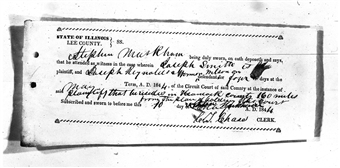 STATE OF ILLINOIS } SS.
LEE COUNTY.
Stephen Markham being duly sworn, on oath deposeth and says,
that he attended as witness in the case wherein Joseph Smith
plaintiff, and Joseph H Reynolds & Harmon Wilson
Defendants four days at the
May Term, A. D. 1844, of the Circuit Court of said County at the instance of
plaintiff that he resides in Hancock County 160 miles
from the place of holding this Court
Subscribed and sworn to before me this 10 day A. D. 1844
CLERK.